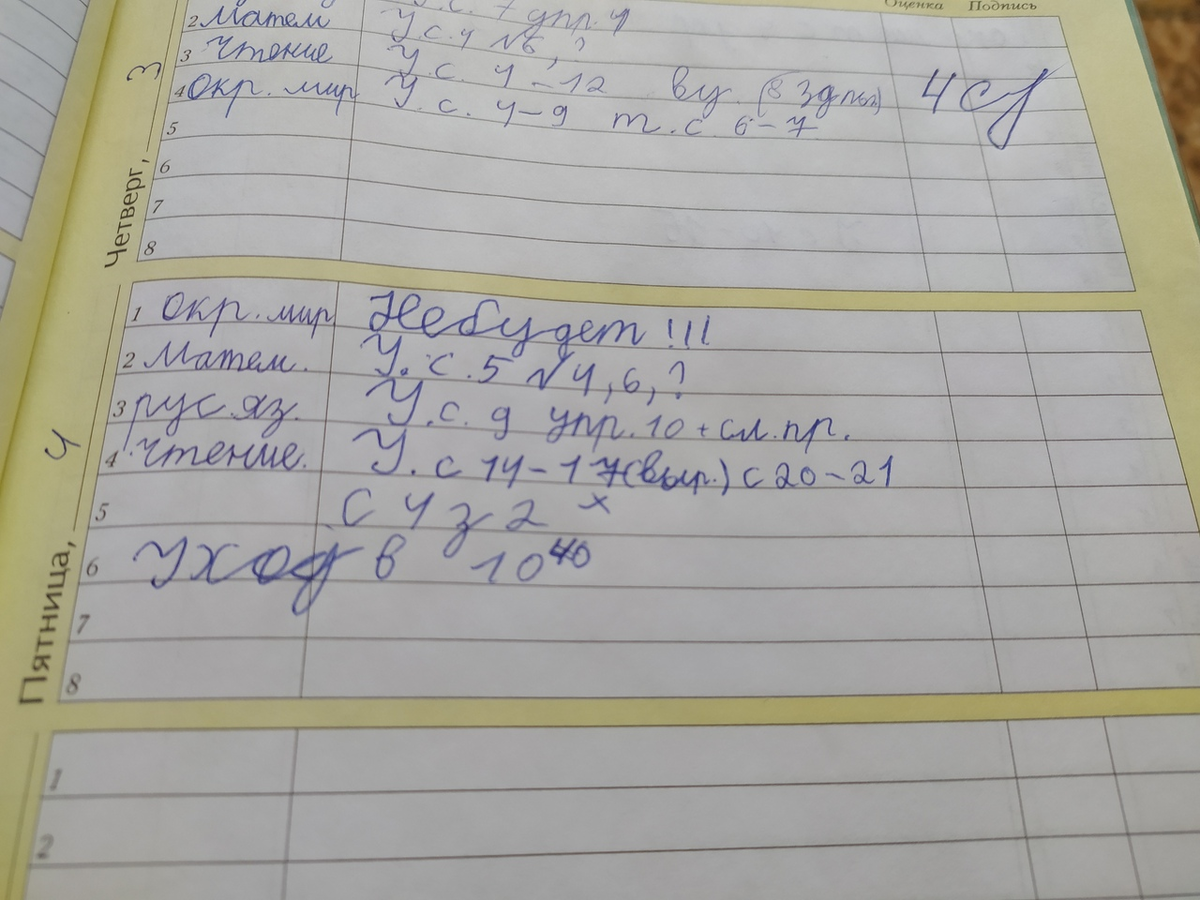 Оценка Подпись
У.с. 7 упр. 4
2 Матем У с 4 №6, ?
3 Чтение У с. 4-12 ву.
4 окр. мир У. с. 4-9 т. с. 6-7
5
6
7
8
Четверг, 3
1 окр. мир Небудет !!!
2 Матем. У. с. 5 №4, 6, ?
3 рус яз. У. с. 9 упр. 10 + сл. пр.
4 чтение. У. с 14-17 (выр.) с 20-21
5 с 4 з 2 х
6 Уход в 10⁴⁰
7
8
Пятница, 4
1
2